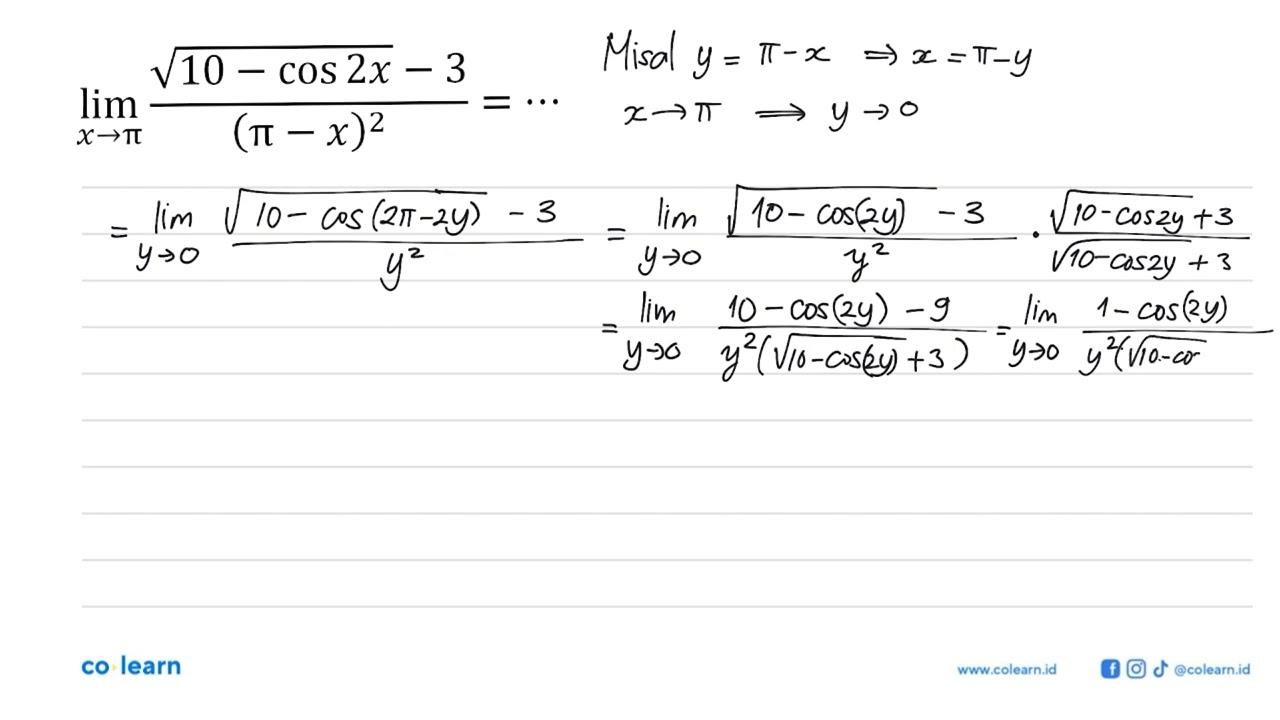 lim x→π (√(10 − cos 2x) − 3)/(π − x)² = ⋯
Misal y = π − x ⇒ x = π − y
x → π ⟹ y → 0
= lim y→0 (√(10 − cos(2π − 2y)) − 3)/y² = lim y→0 (√(10 − cos(2y)) − 3)/y² · (√(10 − cos2y) + 3)/(√(10 − cos2y) + 3)
= lim y→0 (10 − cos(2y) − 9)/(y²(√(10 − cos(2y)) + 3)) = lim y→0 (1 − cos(2y))/(y²(√10 − co
co learn
www.colearn.id
@colearn.id